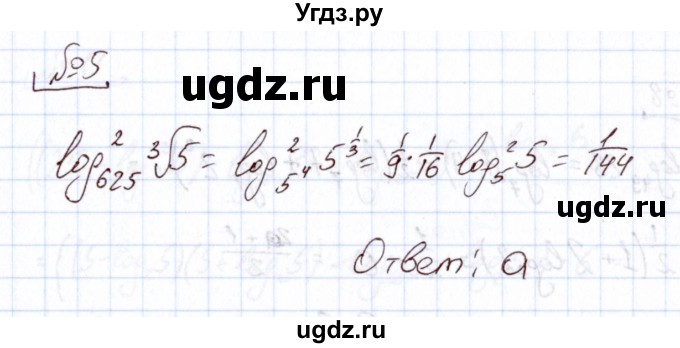 Угдз.ру
№5
ugdz.ru
log²₆₂₅ ³√5 = log²₅⁴ 5^(1/3) = 1/9 · 1/16 log₅² 5 = 1/144
ugdz.ru
Ответ: а
ugdz.ru
ugdz.ru